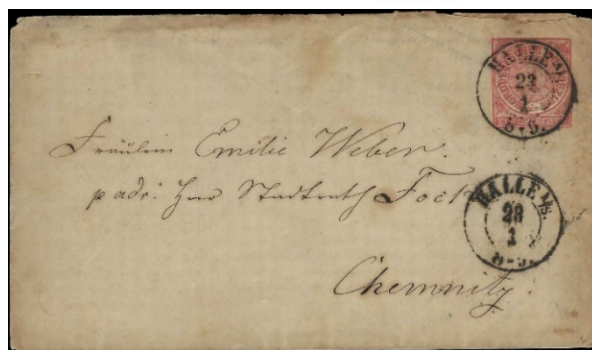 HALLE a/S.
23
1
8-9.
Fräulein Emilie Weber.
padr: Herr Stadtrath Fock
HALLE a/S.
23
1
8-9.
Chemnitz.